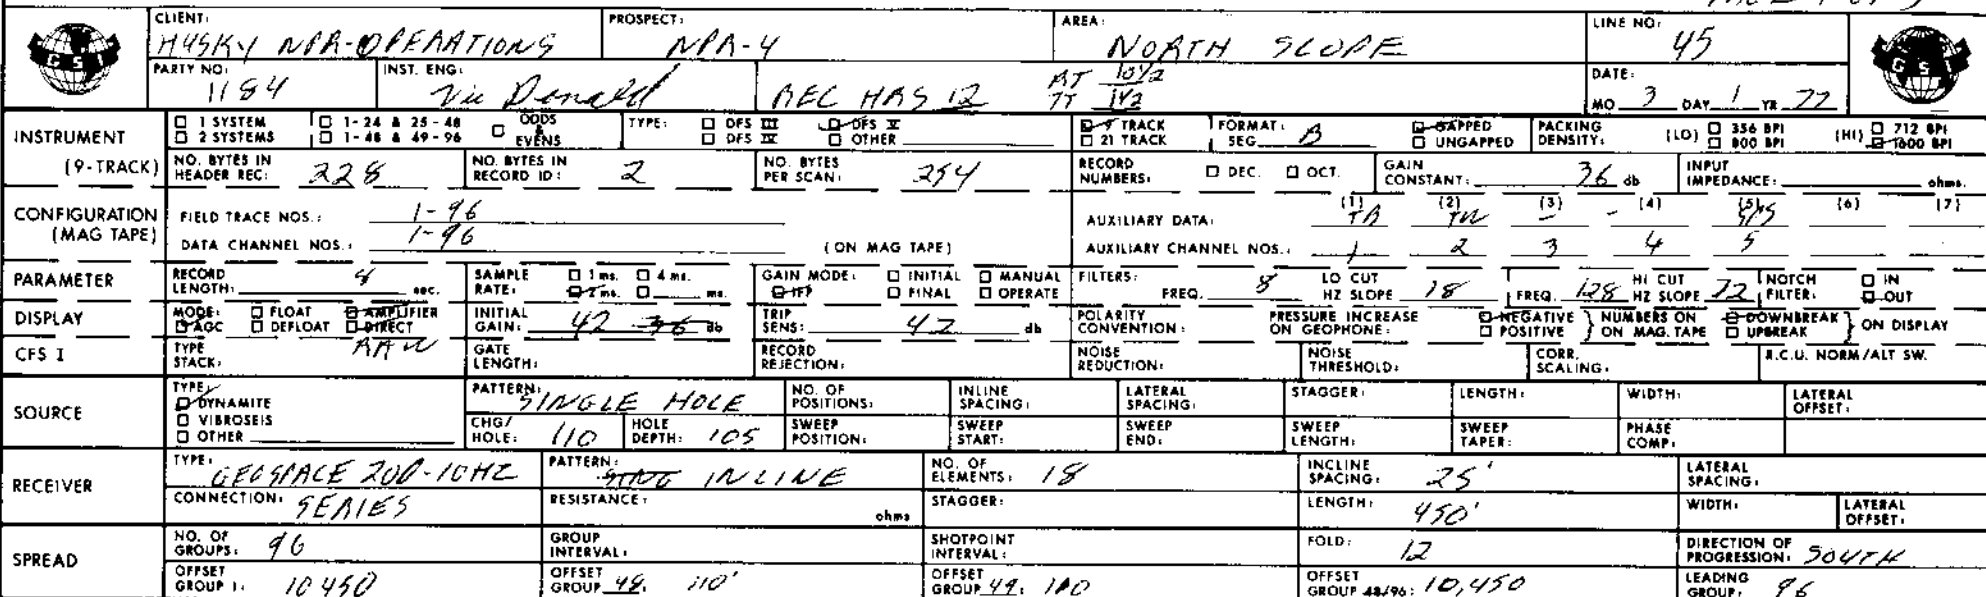 CLIENT: HUSKY NPR-OPERATIONS PROSPECT: NPR-4 AREA: NORTH SLOPE LINE NO: 45
GSI GSI
PARTY NO: 1184 INST. ENG: Vic Donald REC HRS 12 RT 10 1/2 TT 1 1/2 DATE: MO 3 DAY 1 YR 77
INSTRUMENT 1 SYSTEM 1-24 & 25-48 ODDS & EVENS TYPE: DFS III DFS V 9 TRACK FORMAT: SEG B GAPPED PACKING DENSITY: (LO) 356 BPI (HI) 712 BPI
2 SYSTEMS 1-48 & 49-96 DFS IV OTHER 21 TRACK UNGAPPED 800 BPI 1600 BPI
(9-TRACK) NO. BYTES IN HEADER REC: 228 NO. BYTES IN RECORD ID: 2 NO. BYTES PER SCAN: 254 RECORD NUMBERS: DEC. OCT. GAIN CONSTANT: 36 db INPUT IMPEDANCE: ohms.
CONFIGURATION (MAG TAPE) FIELD TRACE NOS.: 1-96 AUXILIARY DATA: (1) TB (2) TW (3) - (4) - (5) (6) (7)
DATA CHANNEL NOS.: 1-96 (ON MAG TAPE) AUXILIARY CHANNEL NOS.: 1 2 3 4 5
PARAMETER RECORD LENGTH: 8 sec. SAMPLE RATE: 1 ms. 4 ms. 2 ms. ms. GAIN MODE: INITIAL MANUAL IFP FINAL OPERATE FILTERS: FREQ. 8 LO CUT HZ SLOPE 18 FREQ. 128 HI CUT HZ SLOPE 72 NOTCH FILTER: IN OUT
DISPLAY MODE: FLOAT AMPLIFIER AGC DEFLOAT DIRECT INITIAL GAIN: 42 36 db TRIP SENS: 42 db POLARITY CONVENTION: PRESSURE INCREASE ON GEOPHONE: NEGATIVE POSITIVE NUMBERS ON ON MAG. TAPE DOWNBREAK UPBREAK ON DISPLAY
CFS I TYPE STACK: RAW GATE LENGTH: RECORD REJECTION: NOISE REDUCTION: NOISE THRESHOLD: CORR. SCALING: R.C.U. NORM/ALT SW.
SOURCE TYPE: DYNAMITE VIBROSEIS OTHER PATTERN: SINGLE HOLE NO. OF POSITIONS: INLINE SPACING: LATERAL SPACING: STAGGER: LENGTH: WIDTH: LATERAL OFFSET:
CHG/HOLE: 110 HOLE DEPTH: 105 SWEEP POSITION: SWEEP START: SWEEP END: SWEEP LENGTH: SWEEP TAPER: PHASE COMP:
RECEIVER TYPE: GEOSPACE 20D-10HZ PATTERN: INLINE NO. OF ELEMENTS: 18 INCLINE SPACING: 25' LATERAL SPACING:
CONNECTION: SERIES RESISTANCE: ohms STAGGER: LENGTH: 450' WIDTH: LATERAL OFFSET:
SPREAD NO. OF GROUPS: 96 GROUP INTERVAL: SHOTPOINT INTERVAL: FOLD: 12 DIRECTION OF PROGRESSION: SOUTH
OFFSET GROUP 1: 10450 OFFSET GROUP 48: 110' OFFSET GROUP 49: 110 OFFSET GROUP 48/96: 10,450 LEADING GROUP: 96